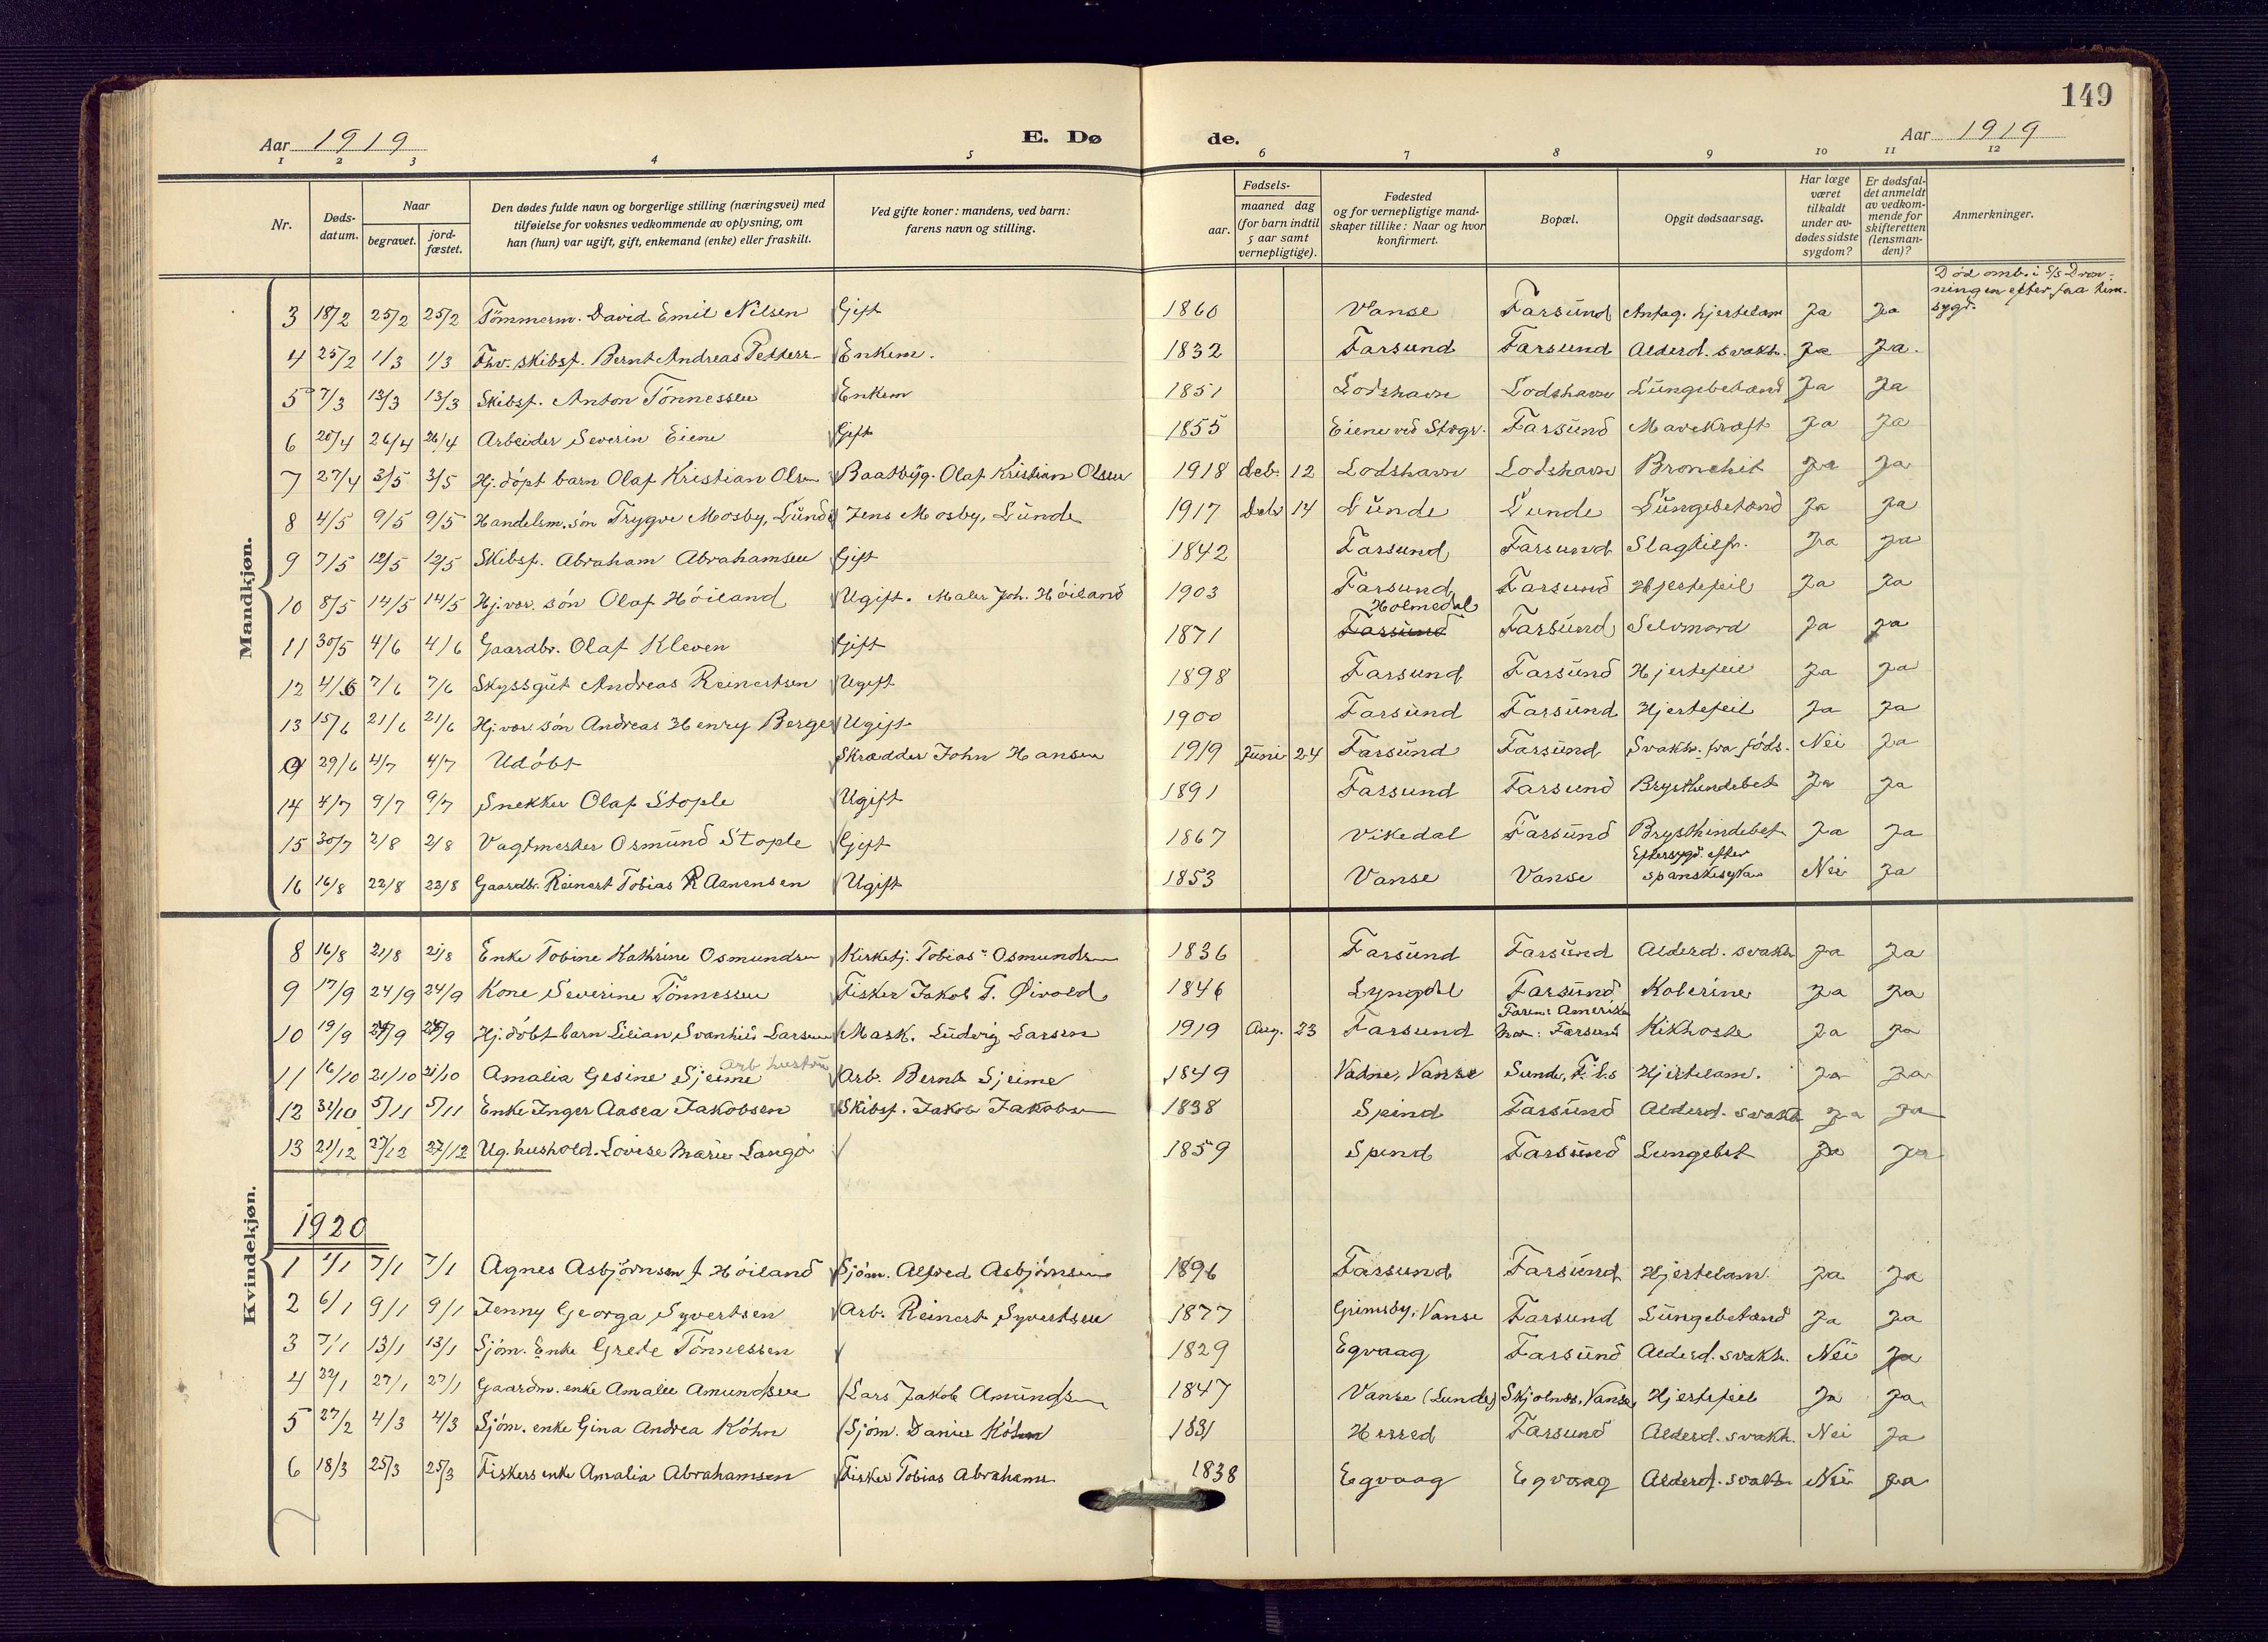 149
Aar 1919 E. Dø de. Aar 1919
1 2 3 4 5 6 7 8 9 10 11 12
Nr. Døds-datum. Naar begravet. jord-fæstet. Den dødes fulde navn og borgerlige stilling (næringsvei) med tilføielse for voksnes vedkommende av oplysning, om han (hun) var ugift, gift, enkemand (enke) eller fraskilt. Ved gifte koner: mandens, ved barn: farens navn og stilling. Fødsels- aar. maaned dag (for barn indtil 5 aar samt vernepligtige). Fødested og for vernepligtige mand-skaper tillike: Naar og hvor konfirmert. Bopæl. Opgit dødsaarsag. Har læge været tilkaldt under av-dødes sidste sygdom? Er dødsfal-det anmeldt av vedkom-mende for skifteretten (lensman-den)? Anmerkninger.
Mandkjøn.
3 18/2 25/2 25/2 Tömmerm. David Emil Nilsen Gift 1860 Vanse Farsund Antag. hjertelam Ja Ja Död omb. i S/S Dron-ningen efter faa tim. sygd.
4 25/2 1/3 1/3 Fhv. skibsf. Bernt Andreas Petters Enkem. 1832 Farsund Farsund Alderd. svakh. Ja Ja.
5 7/3 13/3 13/3 Skibsf. Anton Tönnessen Enkem 1851 Lodshavn Lodshavn Lungebetænd Ja Ja
6 20/4 26/4 26/4 Arbeider Severin Eiene Gift 1855 Eiene ved Stogr. Farsund Mavekræft Ja Ja
7 27/4 3/5 3/5 Hj. döpt barn Olaf Kristian Olsen Baatbyg. Olaf Kristian Olsen 1918 deb. 12 Lodshavn Lodshavn Bronchit Ja Ja
8 4/5 9/5 9/5 Handelsm. sön Trygve Mosby, Lunde Jens Mosby, Lunde 1917 deb 14 Lunde Lunde Lungebetænd Ja Ja
9 7/5 12/5 12/5 Skibsf. Abraham Abrahamsen Gift 1842 Farsund Farsund Slagtilf. Ja Ja
10 8/5 14/5 14/5 Hj. vær. sön Olaf Höiland Ugift. Maler Joh. Höiland 1903 Farsund Farsund Hjertefeil Ja Ja
11 30/5 4/6 4/6 Gaardbr. Olaf Kleven Gift 1871 Holmedal Farsund Farsund Selvmord Ja Ja
12 4/6 7/6 7/6 Skyssgut Andreas Reinertsen Ugift 1898 Farsund Farsund Hjertefeil Ja Ja
13 15/6 21/6 21/6 Hj. vær. sön Andreas Henry Berger Ugift 1900 Farsund Farsund Hjertefeil Ja Ja
29/6 4/7 4/7 Udöbt Skrædder John Hansen 1919 Juni 24 Farsund Farsund Svakh. fra föds. Nei Ja
14 4/7 9/7 9/7 Snekker Olaf Stople Ugift 1891 Farsund Farsund Brysthindebet Ja Ja
15 30/7 2/8 2/8 Vagtmester Osmund Stople Gift 1867 Vikedal Farsund Brysthindebet Ja Ja
16 16/8 22/8 22/8 Gaardbr. Reinert Tobias R Aanensen Ugift 1853 Vanse Vanse Eftersygd. efter spanskesyka Nei Ja
Kvindekjøn.
8 16/8 21/8 21/8 Enke Tobine Kathrine Osmundsen Kirketj. Tobias Osmundsen 1836 Farsund Farsund Alderd. svakh Ja Ja
9 17/9 24/9 24/9 Kone Severine Tönnessen Fisker Jakob T. Øivold 1846 Lyngdal Farsund Kolerine Ja Ja
10 19/9 24/9 24/9 Hj. döbt barn Lilian Svanhild Larsen Mask. Ludvig Larsen 1919 Aug. 23 Farsund Faren: Amerika Mor: Farsund Kikhoste Ja Ja
11 16/10 21/10 21/10 Amalia Gesine Sjeime Arb hustru Arb. Bernt Sjeime 1849 Vatne, Vanse Sunde, F. L.s Hjertelam. Ja Ja
12 31/10 5/11 5/11 Enke Inger Aasea Jakobsen Skibsf. Jakob Jakobsen 1838 Spind Farsund Alderd. svakh Ja Ja
13 21/12 27/12 27/12 Ug. hushold. Lovise Marie Langö 1859 Spind Farsund Lungebet Ja Ja
1920
1 4/1 7/1 7/1 Agnes Asbjörnsen f Höiland Sjöm. Alfred Asbjörnsen 1896 Farsund Farsund Hjertelam. Ja Ja
2 6/1 9/1 9/1 Jenny Georga Syvertsen Arb. Reinert Syvertsen 1877 Grimsby, Vanse Farsund Lungebetænd Ja Ja
3 7/1 13/1 13/1 Sjöm. Enke Grete Tönnessen 1829 Egvaag Farsund Alderd. svakh. Nei Ja
4 22/1 27/1 27/1 Gaardm. enke Amalie Amundsen Lars Jakob Amundsen 1847 Vanse (Lunde) Skjolnes, Vanse, Hjertefeil Ja Ja
5 27/2 4/3 4/3 Sjöm. enke Gina Andrea Köhn Sjöm. Daniel Köhn 1831 Herred Farsund Alderd. svakh. Nei Ja
6 18/3 25/3 25/3 Fiskers enke Amalia Abrahamsen Fisker Tobias Abrahams 1838 Egvaag Egvaag Alderd. svakh. Nei Ja